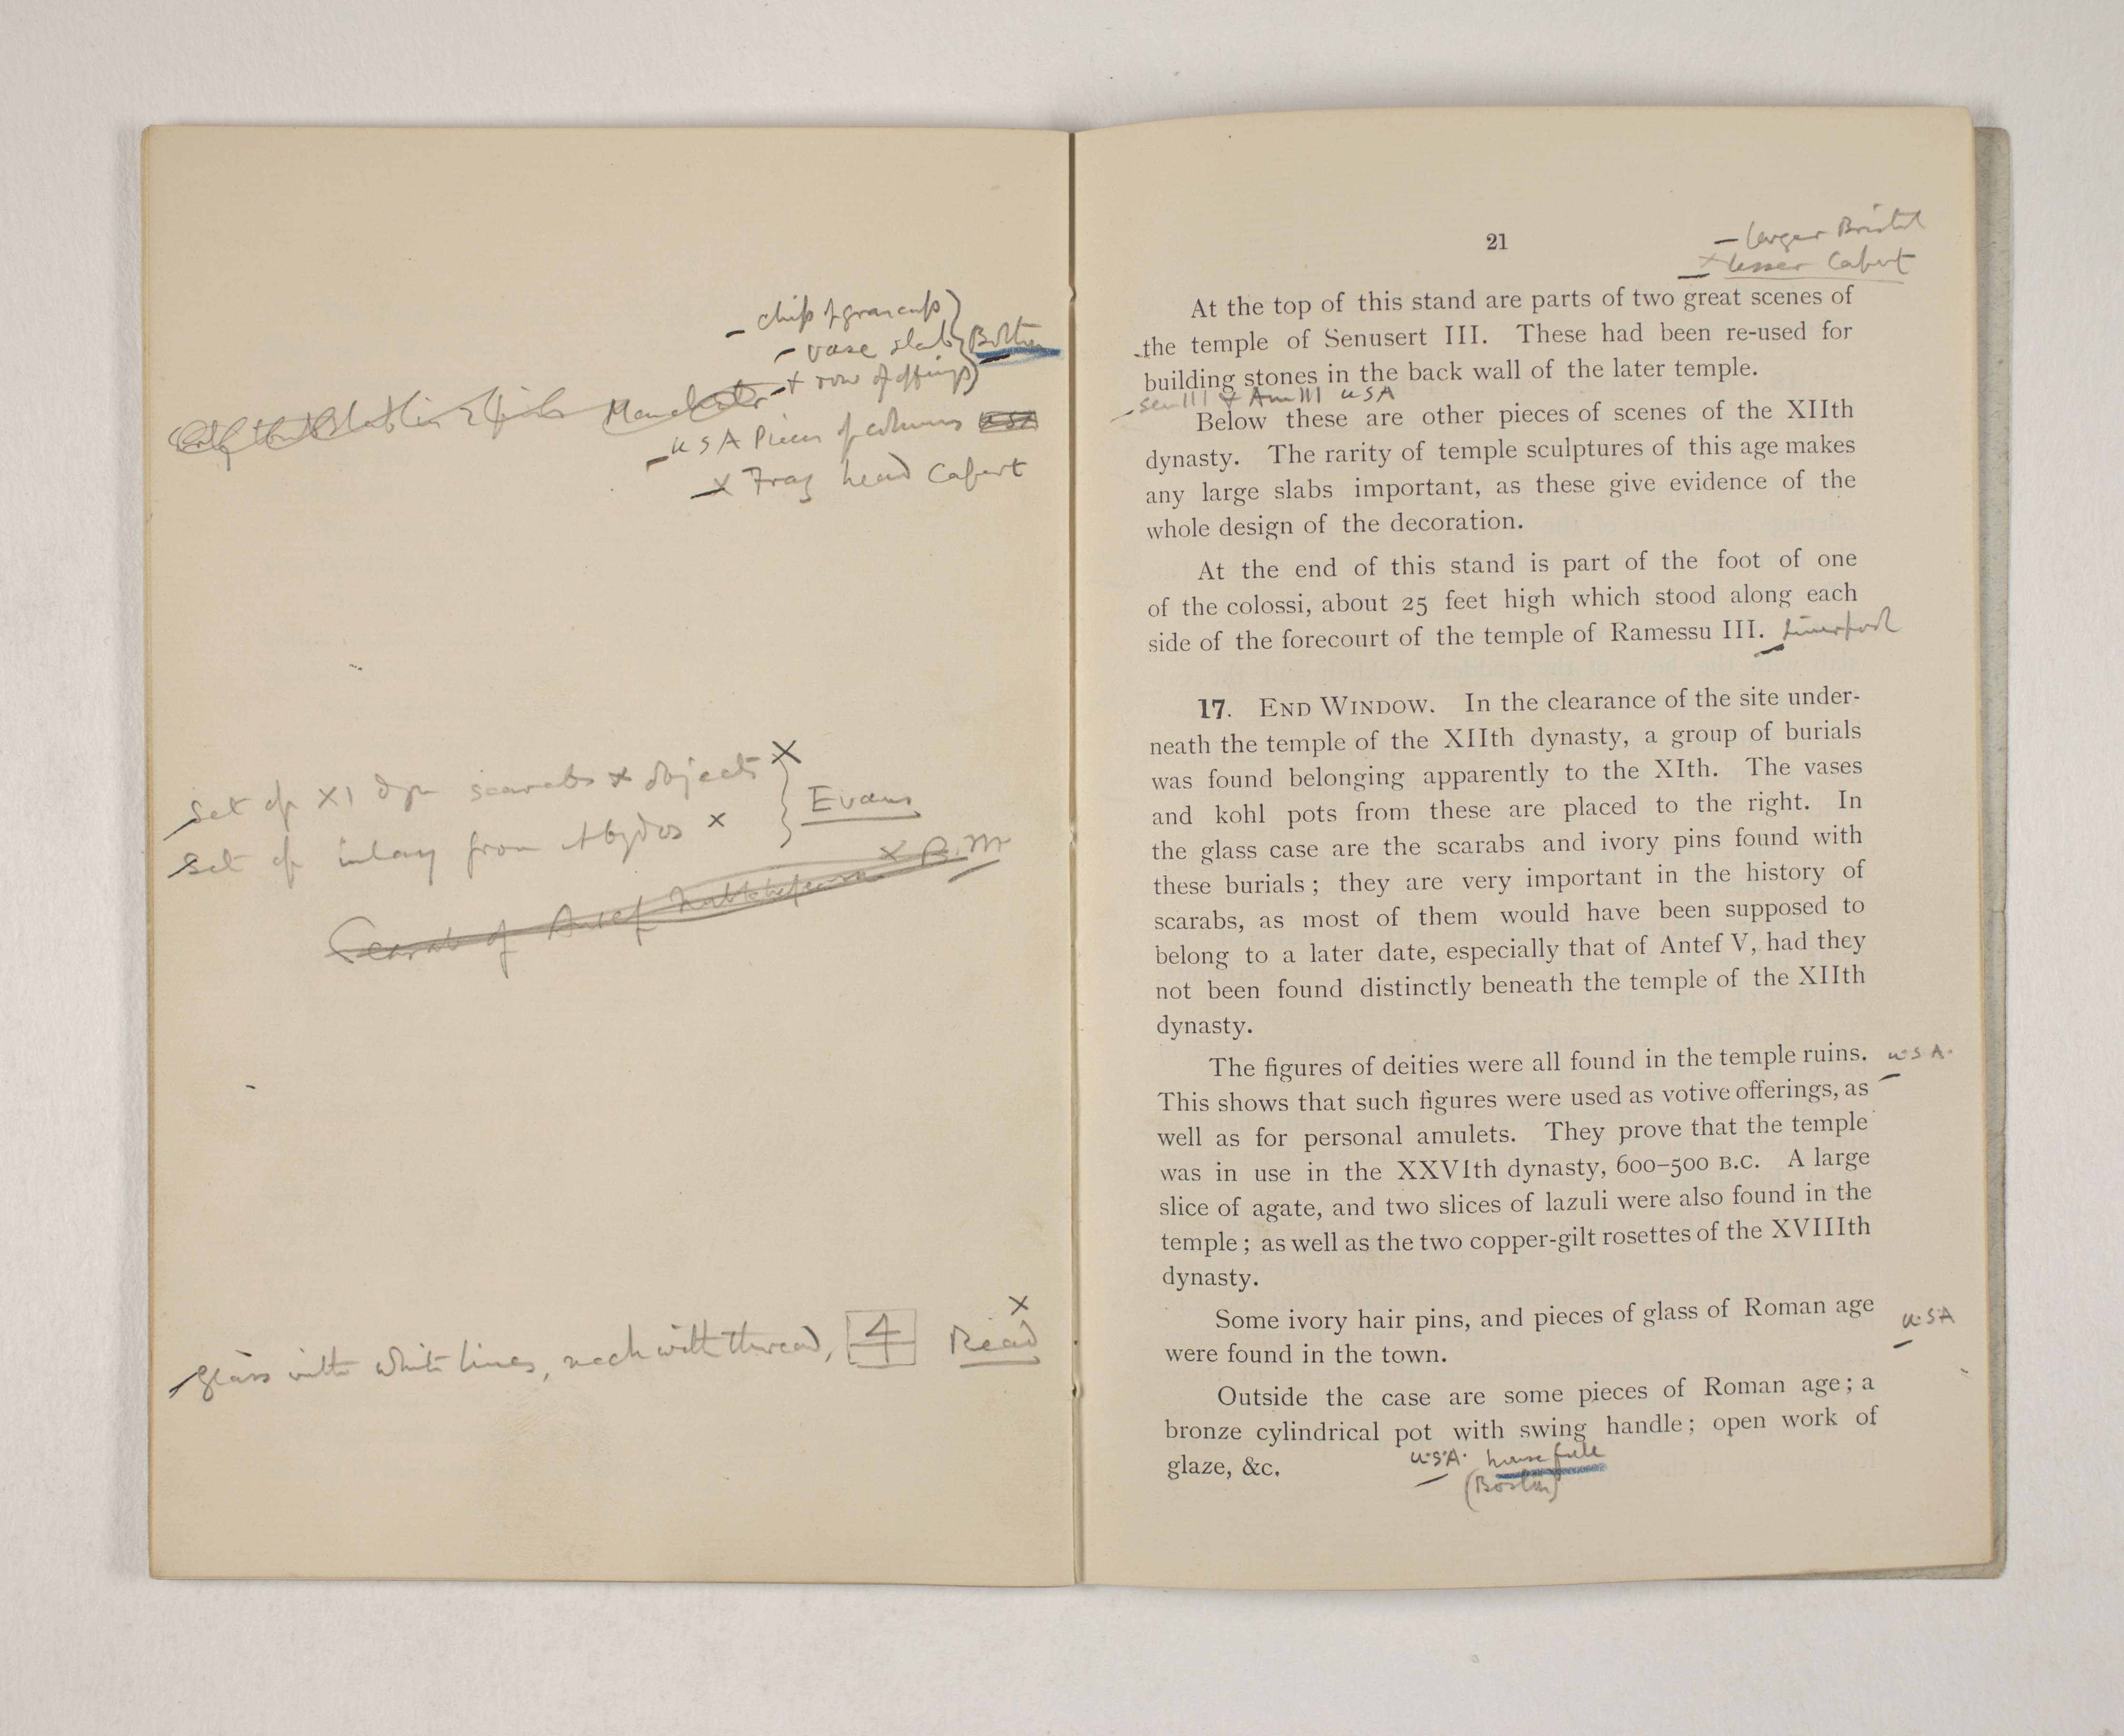 vase slab
row of offerings
Manchester
USA Pieces of columns
x Frag head Capart
Set of XI dyn scarabs & objects x
Set of inlay from Abydos x
Evans
Scarab of Antef x B.M
x
glass with white lines, neck with thread, 4 Read
21
– larger Bristol
x lesser Capart
At the top of this stand are parts of two great scenes of
the temple of Senusert III. These had been re-used for
building stones in the back wall of the later temple.
Sen III & Am III USA
Below these are other pieces of scenes of the XIIth
dynasty. The rarity of temple sculptures of this age makes
any large slabs important, as these give evidence of the
whole design of the decoration.
At the end of this stand is part of the foot of one
of the colossi, about 25 feet high which stood along each
side of the forecourt of the temple of Ramessu III. Liverpool
17. END WINDOW. In the clearance of the site under-
neath the temple of the XIIth dynasty, a group of burials
was found belonging apparently to the XIth. The vases
and kohl pots from these are placed to the right. In
the glass case are the scarabs and ivory pins found with
these burials; they are very important in the history of
scarabs, as most of them would have been supposed to
belong to a later date, especially that of Antef V, had they
not been found distinctly beneath the temple of the XIIth
dynasty.
The figures of deities were all found in the temple ruins. U.S.A.
This shows that such figures were used as votive offerings, as
well as for personal amulets. They prove that the temple
was in use in the XXVIth dynasty, 600–500 B.C. A large
slice of agate, and two slices of lazuli were also found in the
temple; as well as the two copper-gilt rosettes of the XVIIIth
dynasty.
Some ivory hair pins, and pieces of glass of Roman age U.S.A
were found in the town.
Outside the case are some pieces of Roman age; a
bronze cylindrical pot with swing handle; open work of
glaze, &c. U.S.A.
(Boston)